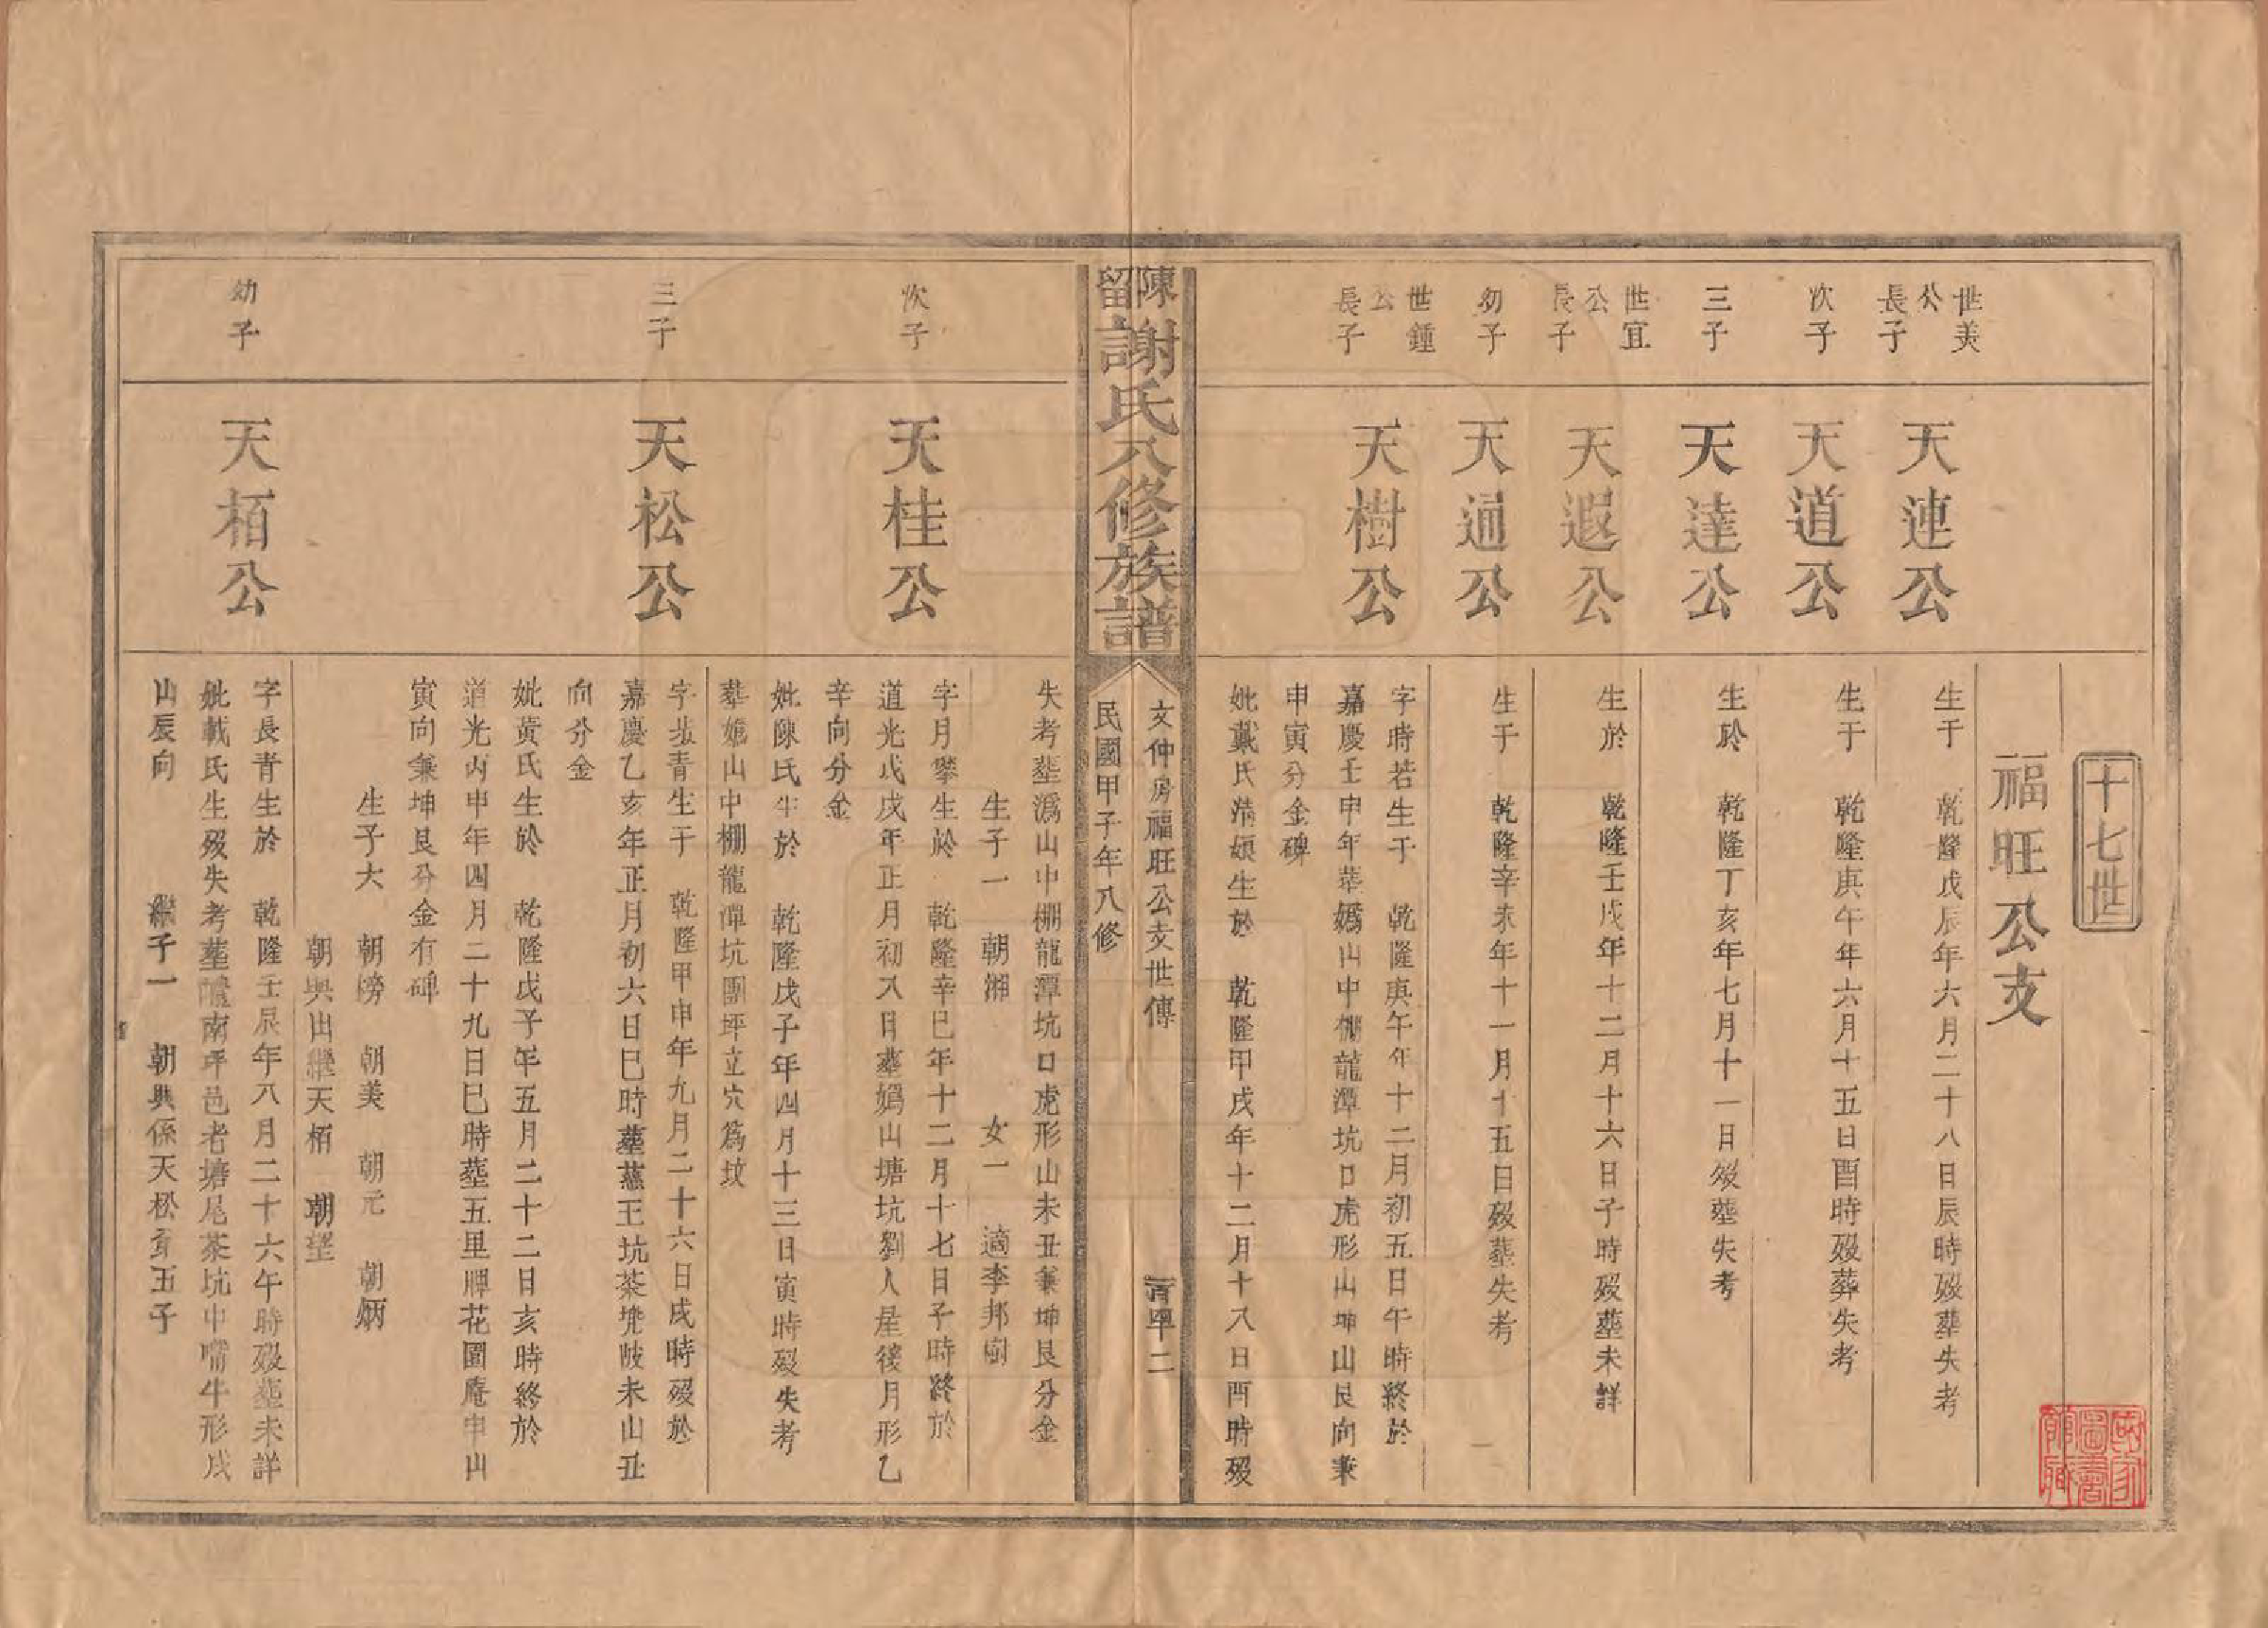 十七世
福旺公支
世美公長子
天連公
生于 乾隆戊辰年六月二十八日辰時歿葬失考
次子
天道公
生于 乾隆庚午年六月十五日酉時歿葬失考
三子
天達公
生於 乾隆丁亥年七月十一日歿葬失考
世宜公長子
天遐公
生於 乾隆壬戌年十二月十六日子時歿葬未詳
幼子
天通公
生于 乾隆辛未年十一月十五日歿葬失考
世鍾公長子
天樹公
字時若生于 乾隆庚午年十二月初五日午時終於
嘉慶壬申年葬溈山中棚龍潭坑口虎形山坤山艮向兼
申寅分金碑
妣戴氏清娘生於 乾隆甲戌年十二月十八日酉時歿
陳留謝氏八修族譜
文仲房福旺公支世傳
民國甲子年八修
失考葬溈山中棚龍潭坑口虎形山未丑兼坤艮分金
生子一 朝湘 女一 適李邦樹
次子
天桂公
字月攀生於 乾隆辛巳年十二月十七日子時終於
道光戊戌年正月初八日葬溈山塘坑劉人屋後月形乙
辛向分金
妣陳氏生於 乾隆戊子年四月十三日寅時歿失考
葬溈山中棚龍潭坑團坪立穴為坟
三子
天松公
字步青生于 乾隆甲申年九月二十六日戌時歿於
嘉慶乙亥年正月初六日巳時葬蕉王坑茶坡未山丑
向分金
妣黃氏生於 乾隆戊子年五月二十二日亥時終於
道光丙申年四月二十九日巳時葬五里牌花園庵申山
寅向兼坤艮分金有碑
生子六 朝榜 朝美 朝元 朝炳
朝興出繼天栢 朝望
幼子
天栢公
字長青生於 乾隆壬辰年八月二十六午時歿葬未詳
妣戴氏生歿失考葬醴南坪邑老塘尾茶坑中嘴牛形戌
山辰向 繼子一 朝興係天松第五子